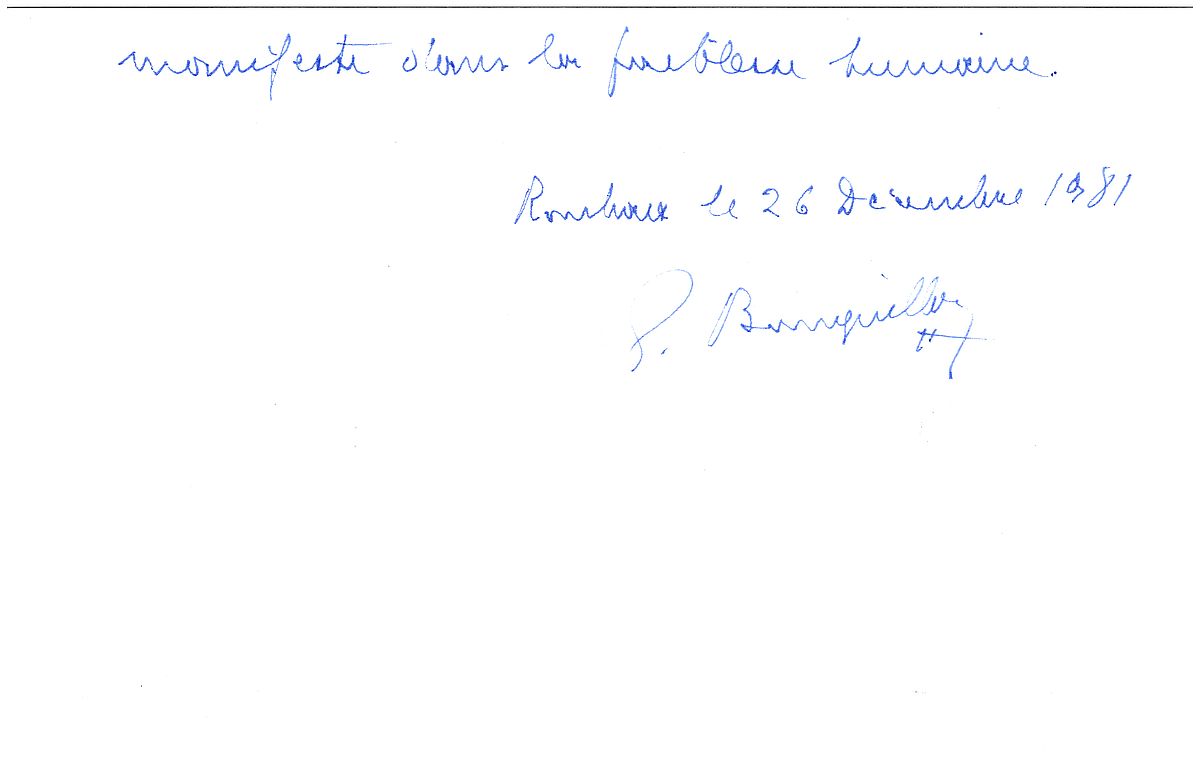 manifeste dans la faiblesse humaine.
Roubaix le 26 Décembre 1981
P.